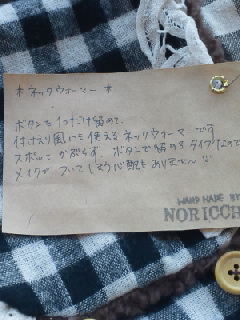 *ネックウォーマー*
ボタンを1つだけ留めて、
付けえり風にも使えるネックウォーマーです
スポッとかぶらず、ボタンで留めるタイプなので
メイクがついてしまう心配もありません
HAND MADE BY
NORICO